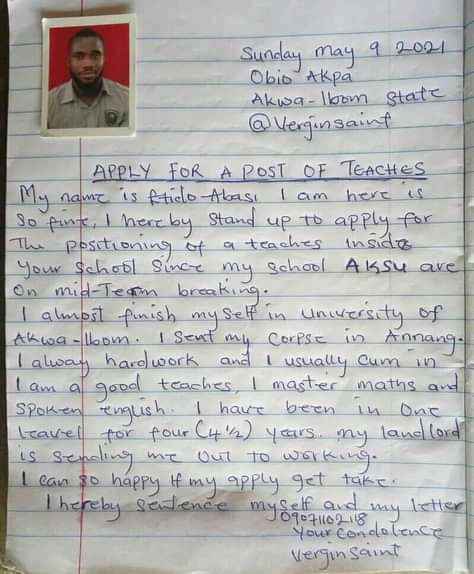 Sunday may 9 2021
Obio Akpa
Akwa-Ibom State
@Verginsaint
APPLY FOR A POST OF TEACHES
My name is Etido-Abasi I am here is
so fine, I hereby stand up to apply for
The positioning of a teaches inside
your school since my school AKSU are
on mid-Term breaking.
I almost finish myself in University of
Akwa-Ibom. I sent my corpse in Annang.
I alway hardwork and I usually cum in
I am a good teaches, I master maths and
spoken english. I have been in one
leavel for four (4½) years. my landlord
is sending me out to working.
I can so happy if my apply get take.
I hereby sentence myself and my letter
09071102118
Your condolence
Verginsaint